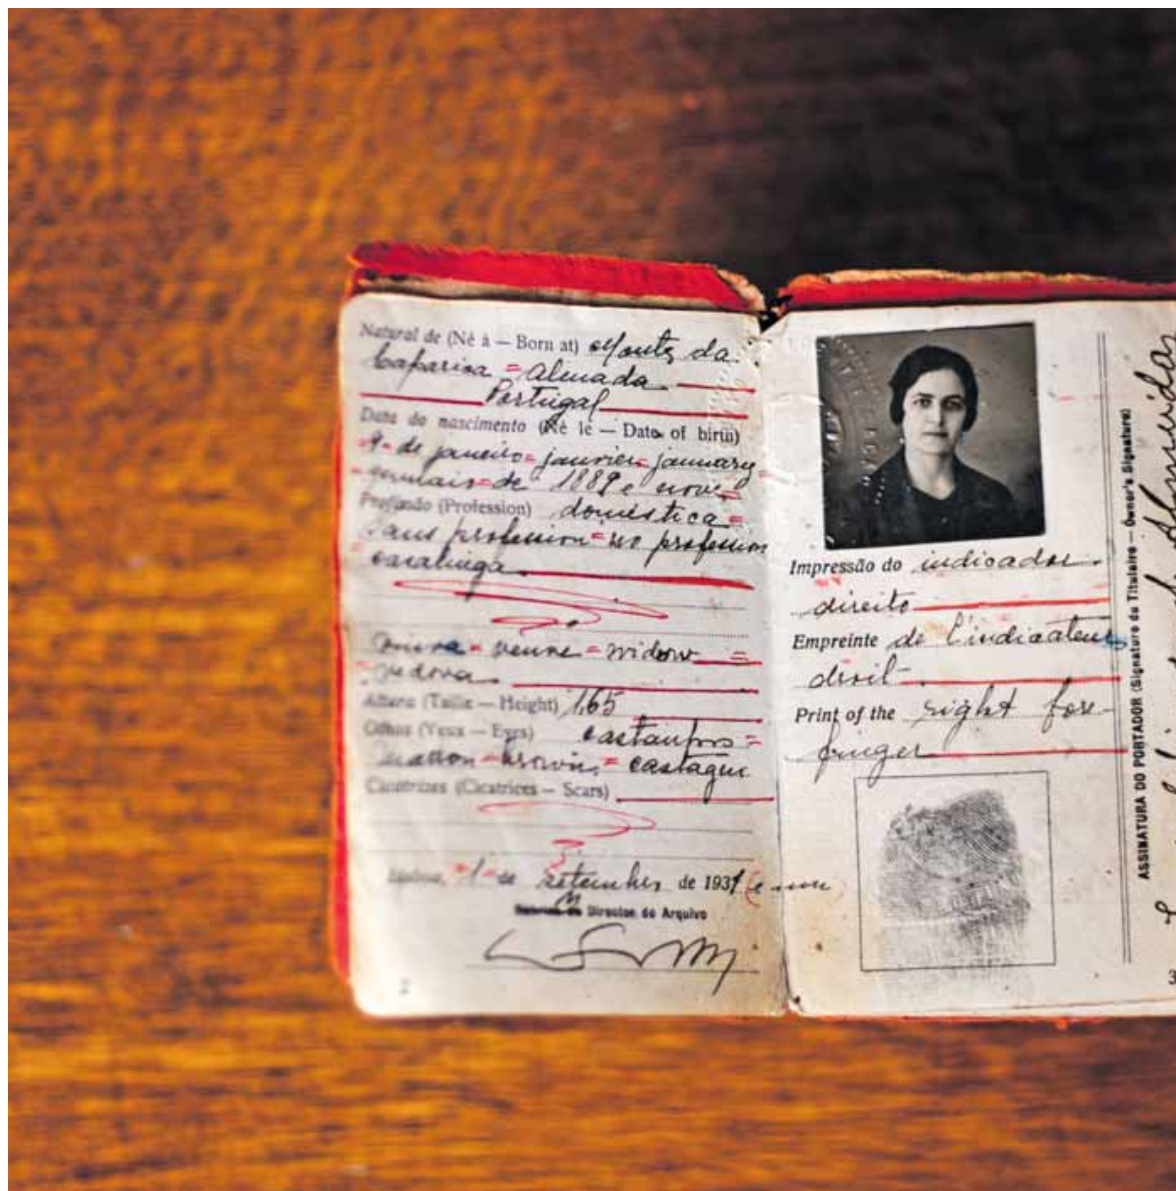 Natural de (Né à — Born at) Monte da
Caparica = Almada
Portugal
Data do nascimento (Né le — Date of birth)
9 = de janeiro = janvier = january
= de 1889 e nove =
Profissão (Profession) doméstica =
sans profession = no profession
casalinga
viuva = veuve = widow =
vedova
Altura (Taille — Height) 1,65
Olhos (Yeux — Eyes) castanhos =
marron = brown = castagni
Cicatrizes (Cicatrices — Scars)
Lisboa, = 1 = de setembro de 1931 (e um
Director do Arquivo
2
Impressão do indicador
direito
Empreinte de l'indicateur
droit
Print of the right fore-
finger
ASSINATURA DO PORTADOR (Signature du Titulaire — Owner's Signature)
3